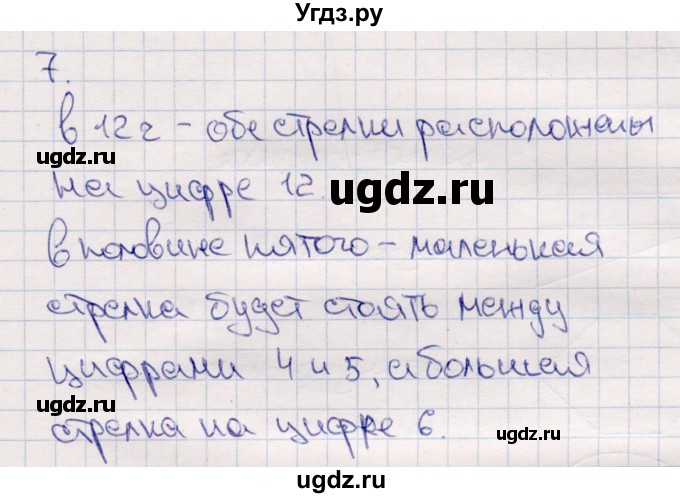 Угдз.ру
7.
В 12 ч - обе стрелки расположены
на цифре 12.
В половине пятого - маленькая
стрелка будет стоять между
цифрами 4 и 5, а большая
стрелка на цифре 6.
ugdz.ru
ugdz.ru
ugdz.ru
ugdz.ru
ugdz.ru
ugdz.ru
ugdz.ru